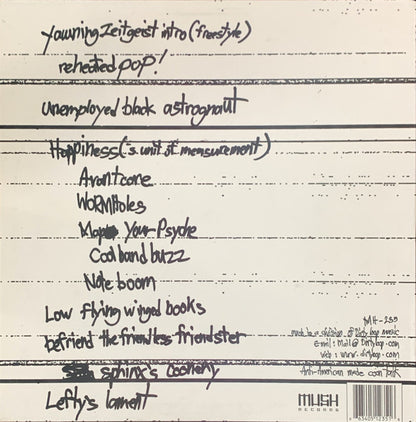 yawning zeitgeist intro (freestyle)
reheated pop!
unemployed black astronaut
Happiness ('s unit of measurement)
Avantcore
WORMHOLES
Map Your Psyche
Cool band buzz
Note boom
Low flying winged books
befriend the friendless friendster
sphinx's coonery
Lefty's lament
MH-235
made by a division of Dirty Loop music
e-mail: Mail@Dirtyloop.com
web: www.dirtyloop.com
Anti-American made coon
MUSH
RECORDS